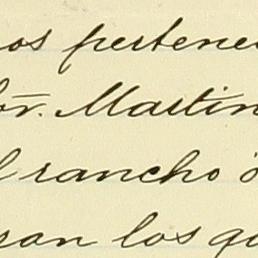 os pertene
or. Martin
l rancho ó
son los qu